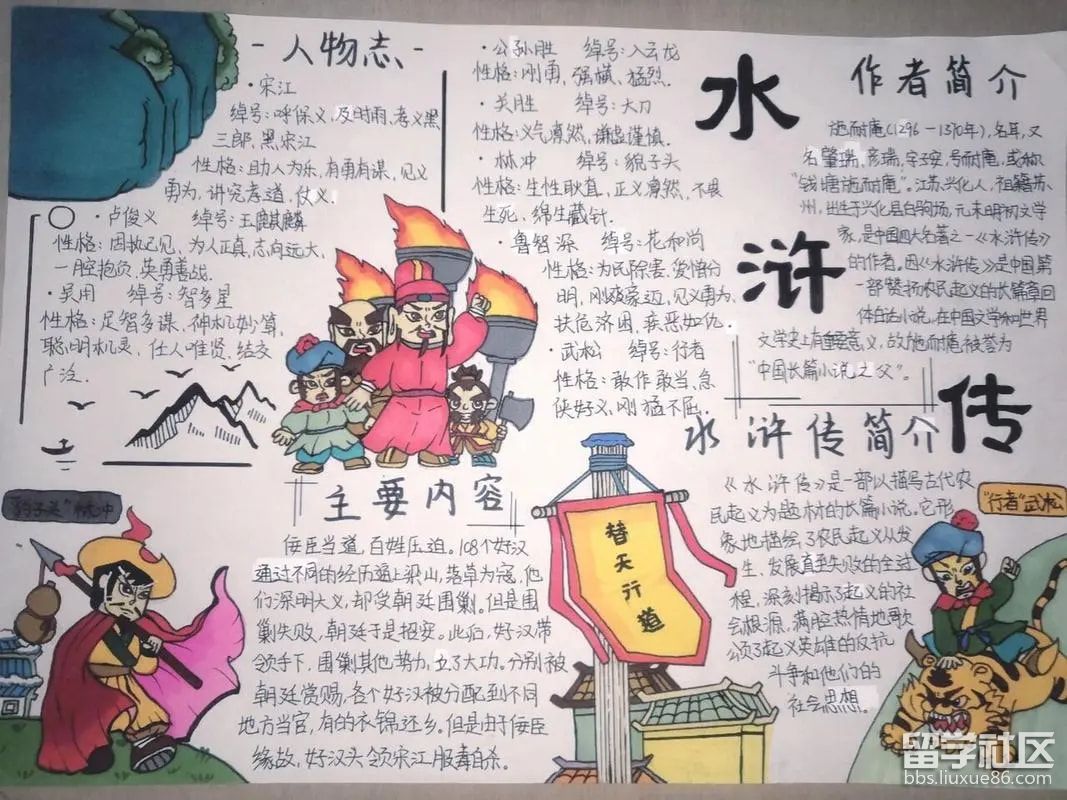 - 人物志 -
· 宋江
绰号：呼保义，及时雨，孝义黑
三郎，黑宋江
性格：助人为乐，有勇有谋，见义
勇为，讲究孝道，仗义．
· 卢俊义 绰号：玉麒麟
性格：固执己见，为人正真，志向远大，
一腔抱负，英勇善战．
· 吴用 绰号：智多星
性格：足智多谋，神机妙算，
聪明机灵，任人唯贤，结交
广泛．
· 公孙胜 绰号：入云龙
性格：刚勇，强横，猛烈．
· 关胜 绰号：大刀
性格：义气凛然，谦虚谨慎．
· 林冲 绰号：豹子头
性格：生性耿直，正义凛然，不畏
生死，绵里藏针．
· 鲁智深 绰号：花和尚
性格：为民除害，爱憎分
明，刚烈豪迈，见义勇为，
扶危济困，疾恶如仇．
· 武松 绰号：行者
性格：敢作敢当，急
侠好义，刚猛不屈．
水
浒
传
作者简介
施耐庵(1296－1370年)，名耳，又
名肇瑞，彦瑞，字子安，号耐庵，或称
“钱塘施耐庵”。江苏兴化人，祖籍苏
州，出生于兴化县白驹场，元末明初文学
家，是中国四大名著之一《水浒传》
的作者。因《水浒传》是中国第
一部赞扬农民起义的长篇章回
体白话小说，在中国文学和世界
文学史上有重要意义，故施耐庵被誉为
“中国长篇小说之父”。
水浒传简介
《水浒传》是一部以描写古代农
民起义为题材的长篇小说。它形
象地描绘了农民起义从发
生、发展直至失败的全过
程，深刻揭示了起义的社
会根源，满腔热情地歌
颂了起义英雄的反抗
斗争和他们的
社会思想．
主要内容
佞臣当道，百姓压迫。108个好汉
通过不同的经历逼上梁山，落草为寇，他
们深明大义，却受朝廷围剿。但是围
剿失败，朝廷于是招安。此后，好汉带
领手下，围剿其他势力，立了大功。分别被
朝廷赏赐，各个好汉被分配到不同
地方当官，有的衣锦还乡。但是由于佞臣
缘故，好汉头领宋江服毒自杀。
“豹子头”林冲
替天行道
“行者”武松
留学社区
bbs.liuxue86.com